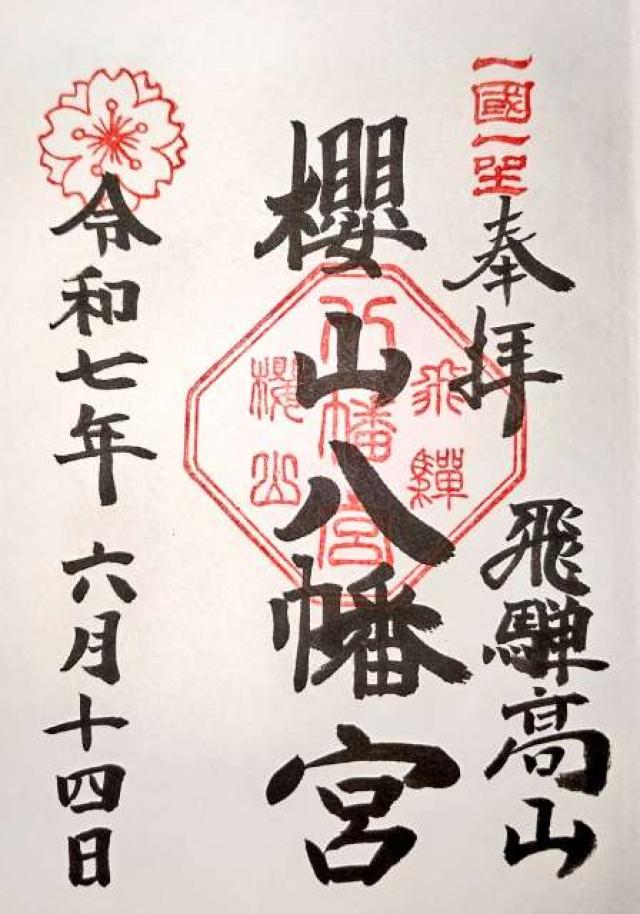 一國一社
奉拝
飛騨高山
櫻山八幡宮
飛驒
八幡宮
櫻山
令和七年 六月十四日